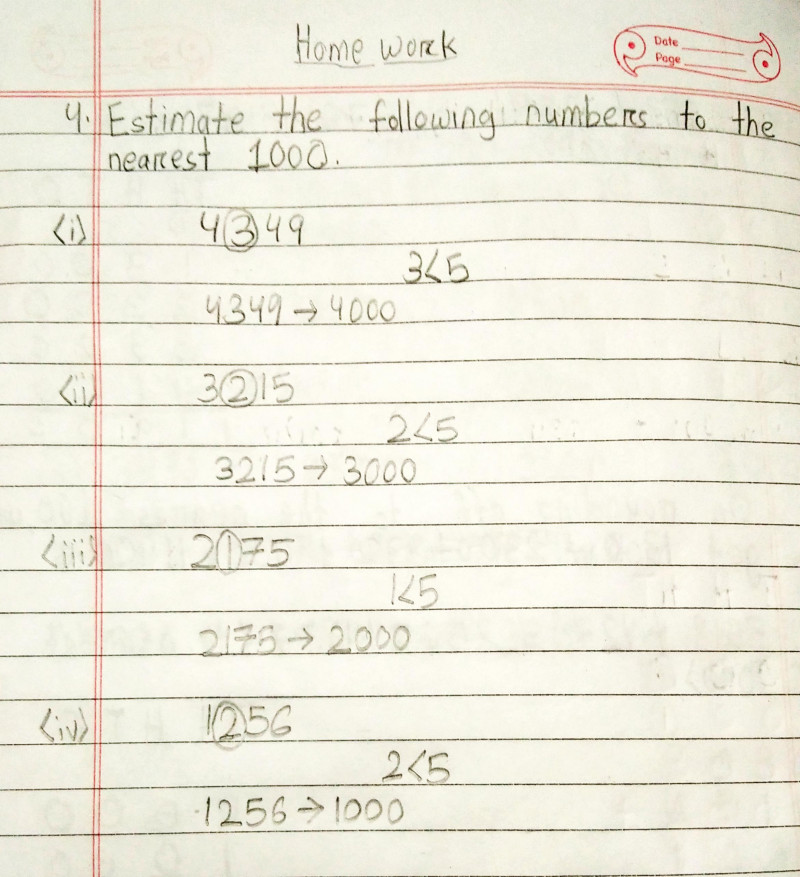 Home work
Date
Page
4. Estimate the following numbers to the
nearest 1000.
(i) 4349
3<5
4349 → 4000
(ii) 3215
2<5
3215 → 3000
(iii) 2175
1<5
2175 → 2000
(iv) 1256
2<5
1256 → 1000